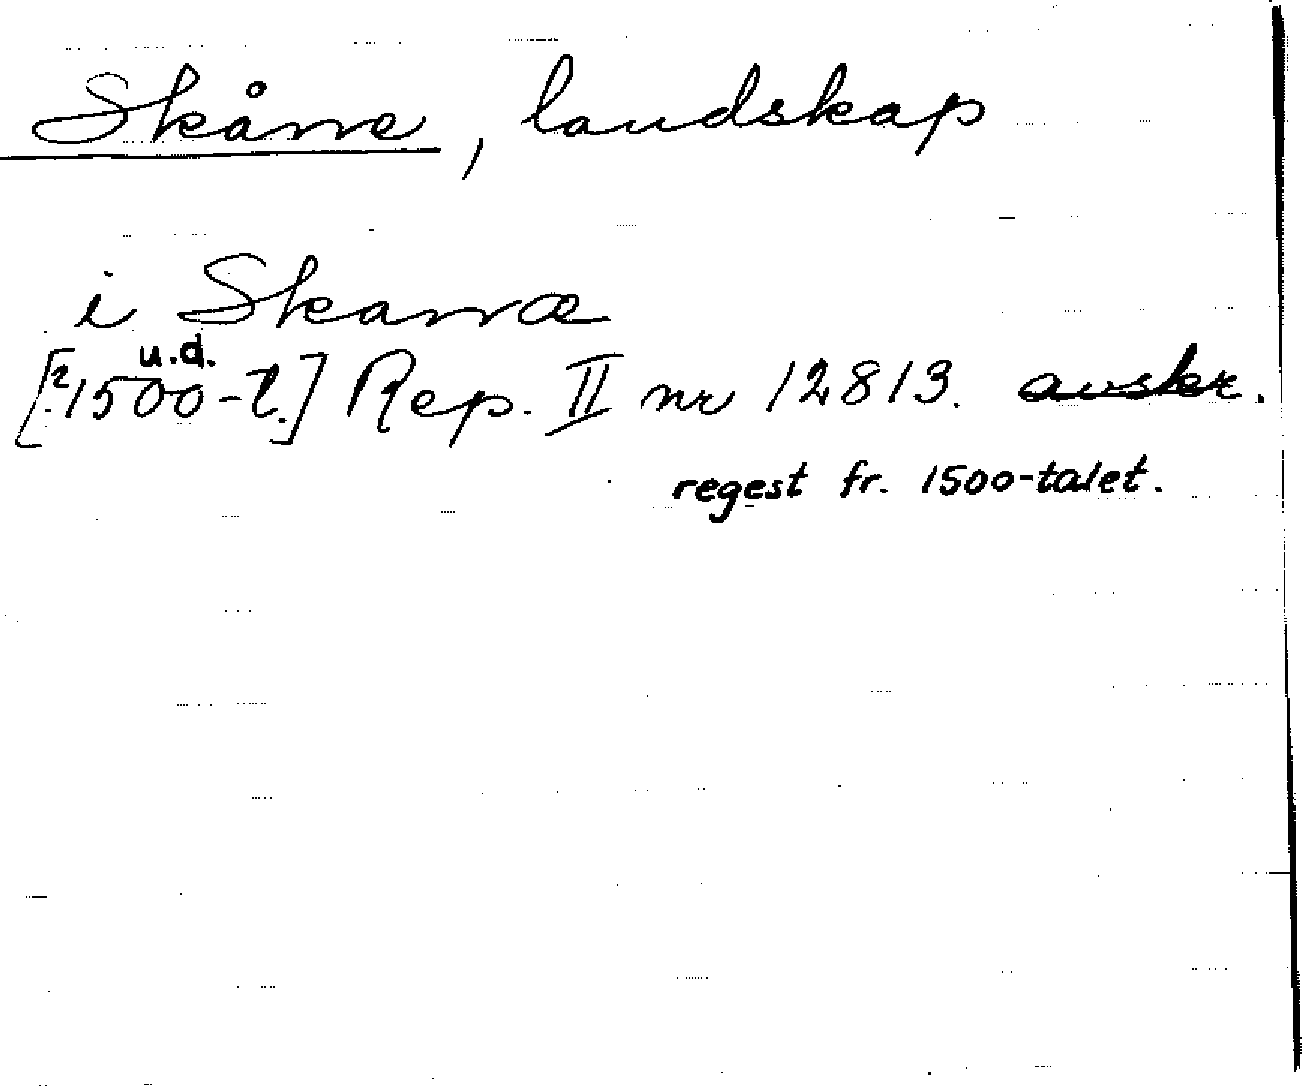 Skåne, landskap
i Skanæ
u.d.
[?1500-t.] Rep. II nr 12813. avskr.
regest fr. 1500-talet.